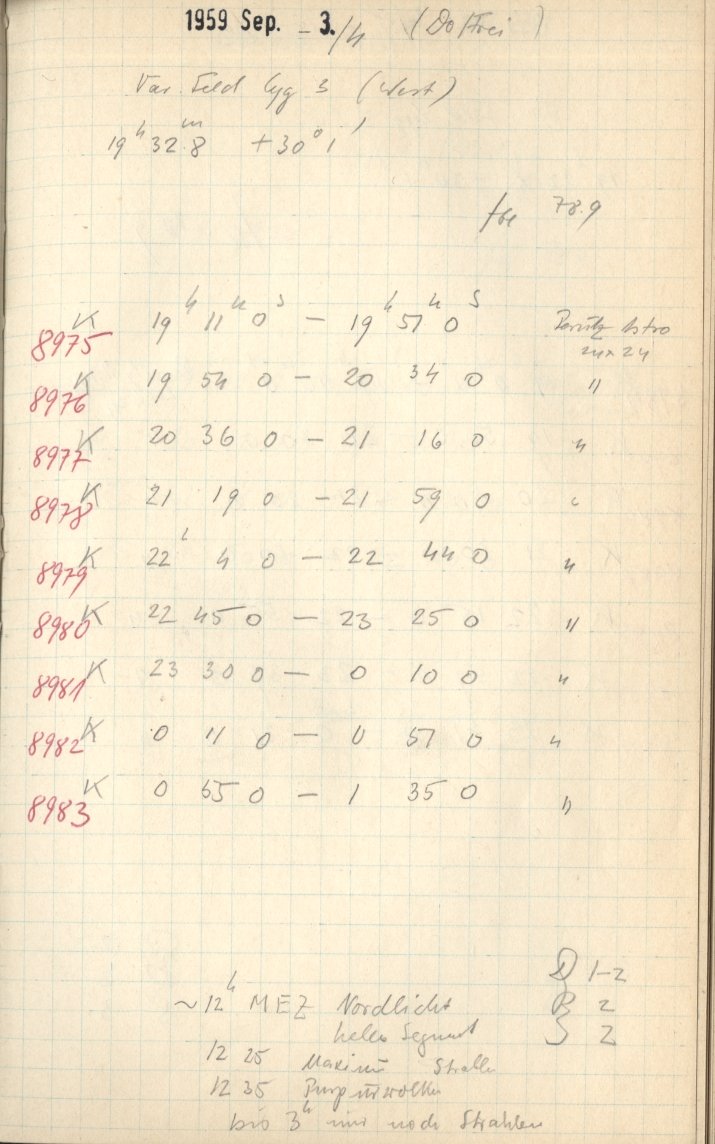 1959 Sep. - 3./4 (Do/Frei)
Var. Feld Cyg 3 (West)
19h 32m.8 +30° 1'
78.9
8975 K 19h 11m 0s - 19h 51m 0s Perutz Astro
24x24
8976 K 19 54 0 - 20 34 0 "
8977 K 20 36 0 - 21 16 0 "
8978 K 21 19 0 - 21 59 0 "
8979 K 22h 4 0 - 22 44 0 "
8980 K 22 45 0 - 23 25 0 "
8981 K 23 30 0 - 0 10 0 "
8982 K 0 11 0 - 0 51 0 "
8983 K 0 55 0 - 1 35 0 "
D 1-2
~12h MEZ Nordlicht B 2
helles Segment S 2
12 25 Maximum Strahlen
12 35 Purpurwolken
bis 3h nur noch Strahlen